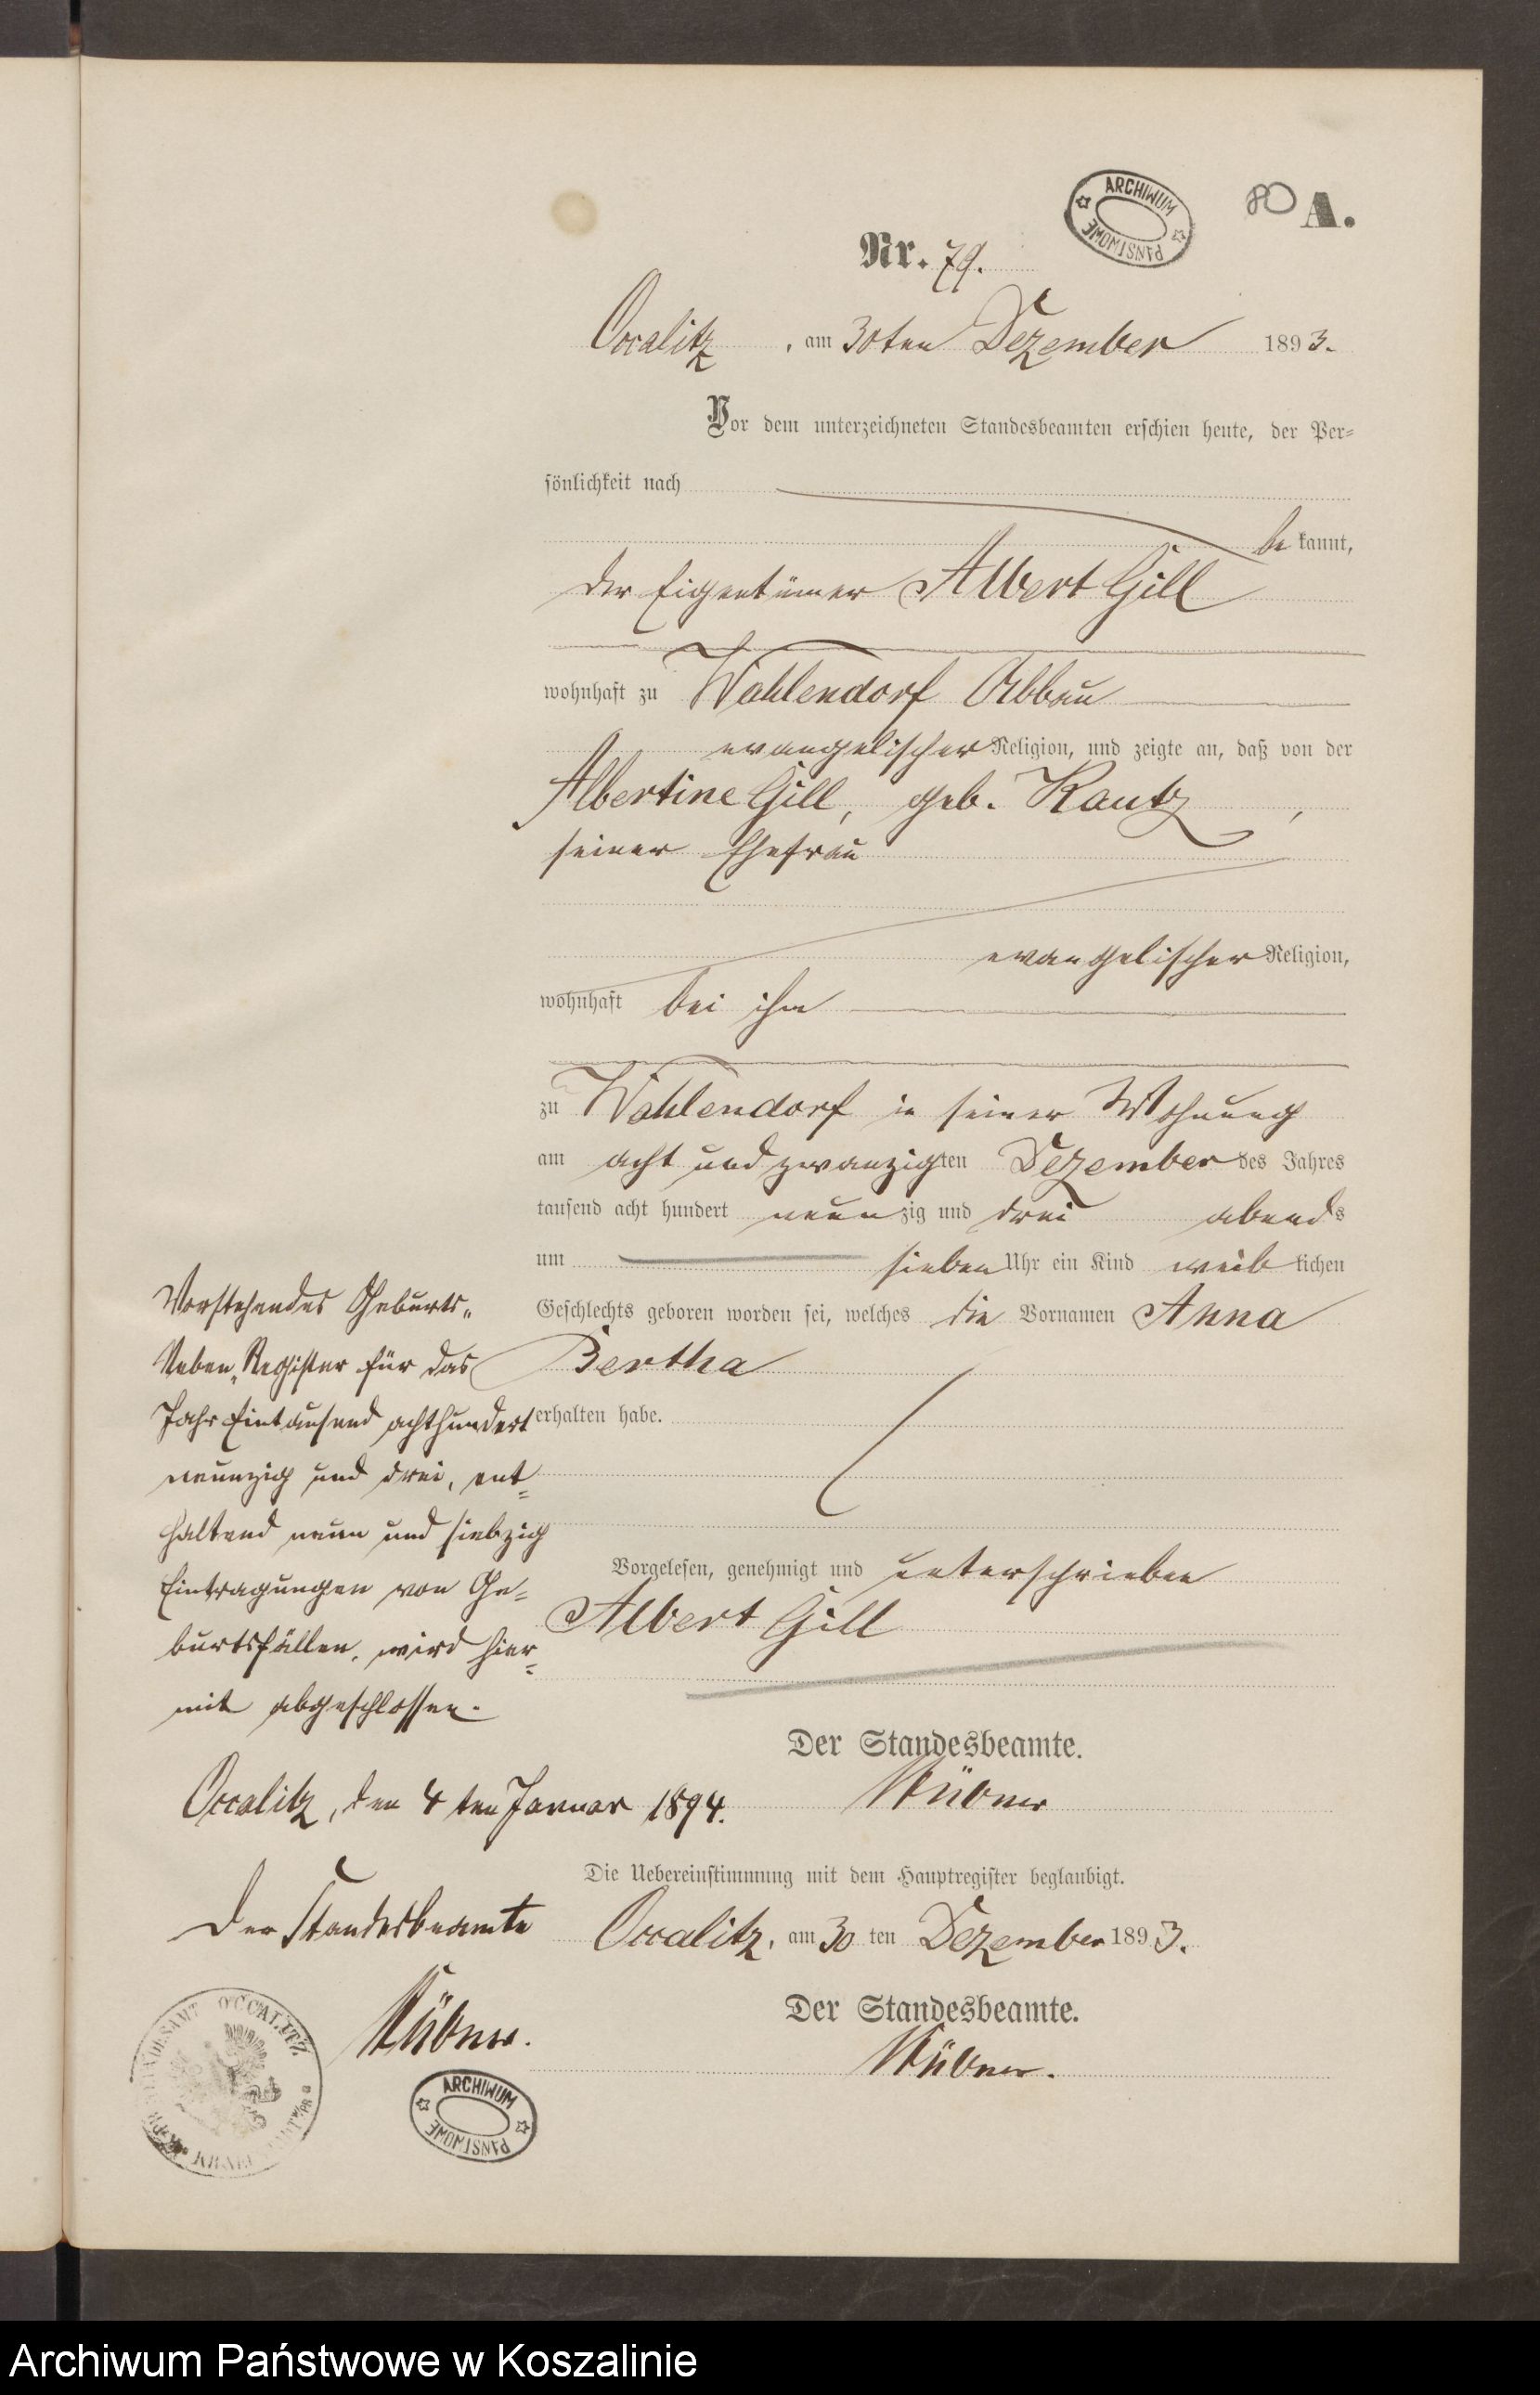 80 A.
ARCHIWUM PAŃSTWOWE
Nr. 79.
Occalitz, am 30ten Dezember 1893.
Vor dem unterzeichneten Standesbeamten erschien heute, der Per=
sönlichkeit nach
be kannt,
der Eigentümer Albert Gill
wohnhaft zu Wahlendorf Abbau
evangelischer Religion, und zeigte an, daß von der
Albertine Gill, geb. Kautz,
seiner Ehefrau
evangelischer Religion,
wohnhaft bei ihm
zu Wahlendorf in seiner Wohnung
am acht und zwanzigten Dezember des Jahres
tausend acht hundert neunzig und drei abends
um sieben Uhr ein Kind weiblichen
Geschlechts geboren worden sei, welches die Vornamen Anna
Bertha
erhalten habe.
Vorgelesen, genehmigt und unterschrieben
Albert Gill
Der Standesbeamte.
Die Uebereinstimmung mit dem Hauptregister beglaubigt.
Occalitz, am 30 ten Dezember 1893.
Der Standesbeamte.
Vorstehendes Geburts-
Neben-Register für das
Jahr Eintausend achthundert
neunzig und drei, ent=
haltend neun und siebzig
Eintragungen von Ge=
burtsfällen, wird hier=
mit abgeschlossen.
Occalitz, den 4ten Januar 1894.
Der Standesbeamte
STANDESAMT OCCALITZ
ARCHIWUM PAŃSTWOWE
Archiwum Państwowe w Koszalinie